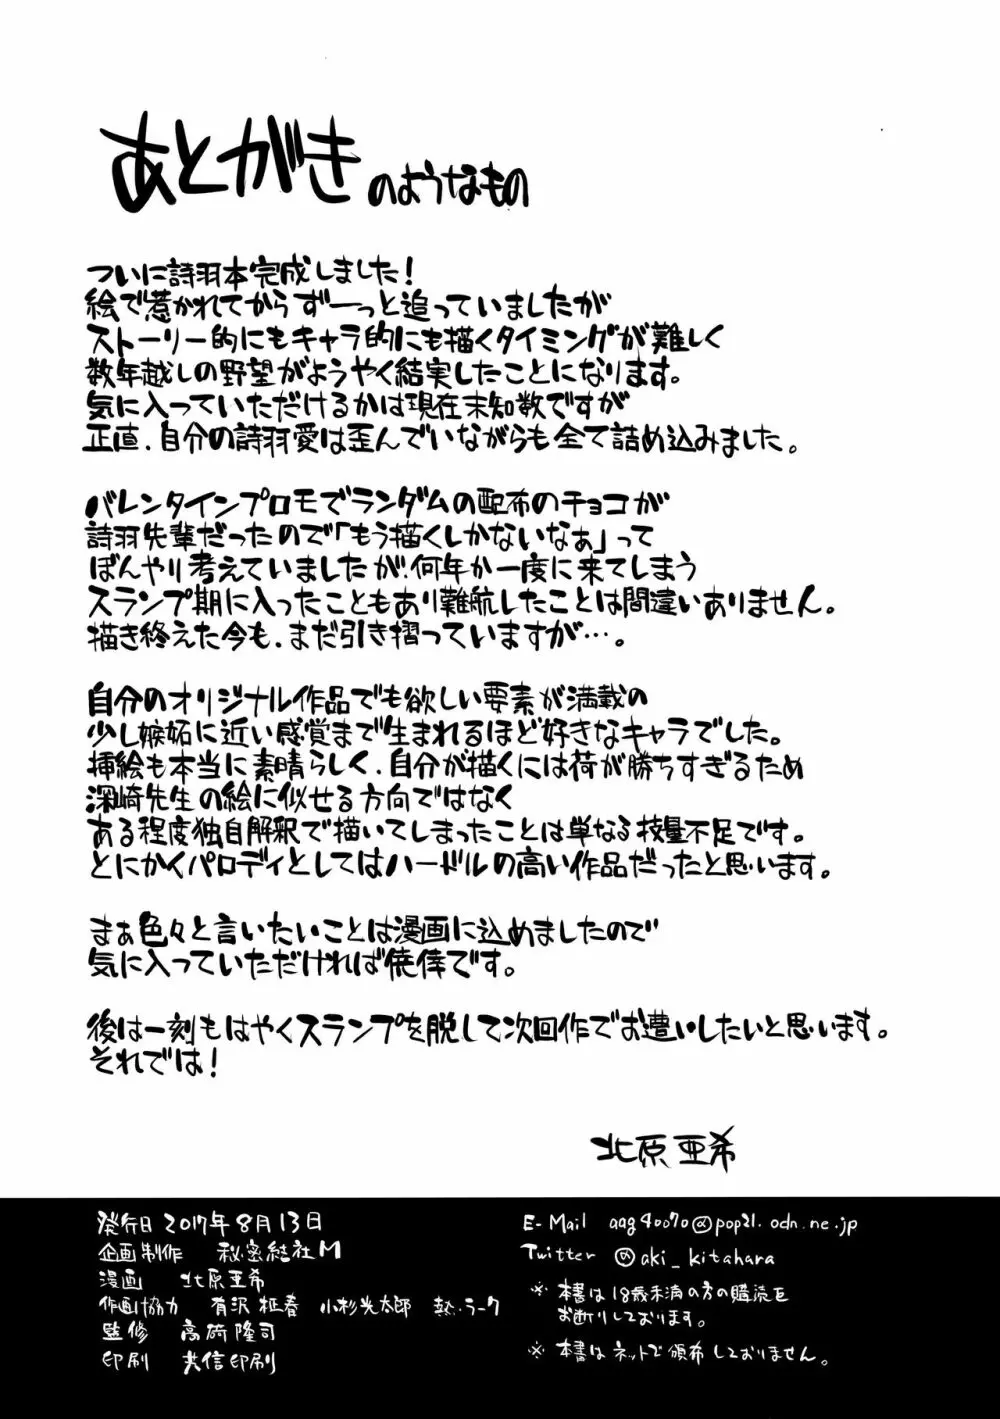 あとがきのようなもの
ついに詩羽本完成しました!
絵で惹かれてからずーっと追っていましたが
ストーリー的にもキャラ的にも描くタイミングが難しく
数年越しの野望がようやく結実したことになります。
気に入っていただけるかは現在未知数ですが
正直、自分の詩羽愛は歪んでいながらも全て詰め込みました。
バレンタインプロモでランダムの配布のチョコが
詩羽先輩だったので「もう描くしかないなぁ」って
ぼんやり考えていましたが、何年か一度に来てしまう
スランプ期に入ったこともあり難航したことは間違いありません。
描き終えた今も、まだ引き摺っていますが…。
自分のオリジナル作品でも欲しい要素が満載の
少し嫉妬に近い感覚まで生まれるほど好きなキャラでした。
挿絵も本当に素晴らしく、自分が描くには荷が勝ちすぎるため
深崎先生の絵に似せる方向ではなく
ある程度独自解釈で描いてしまったことは単なる技量不足です。
とにかくパロディとしてはハードルの高い作品だったと思います。
まぁ色々と言いたいことは漫画に込めましたので
気に入っていただければ僥倖です。
後は一刻もはやくスランプを脱して次回作でお遭いしたいと思います。
それでは!
北原亜希
発行日 2017年8月13日
企画制作 秘密結社M
漫画 北原亜希
作画協力 有沢柾春 小杉光太郎 熱・ラーク
監修 高碕隆司
印刷 共信印刷
E-Mail aag40070@pop21.odn.ne.jp
Twitter @aki_kitahara
※ 本書は18歳未満の方の購読を
お断りしております。
※ 本書はネットで頒布しておりません。